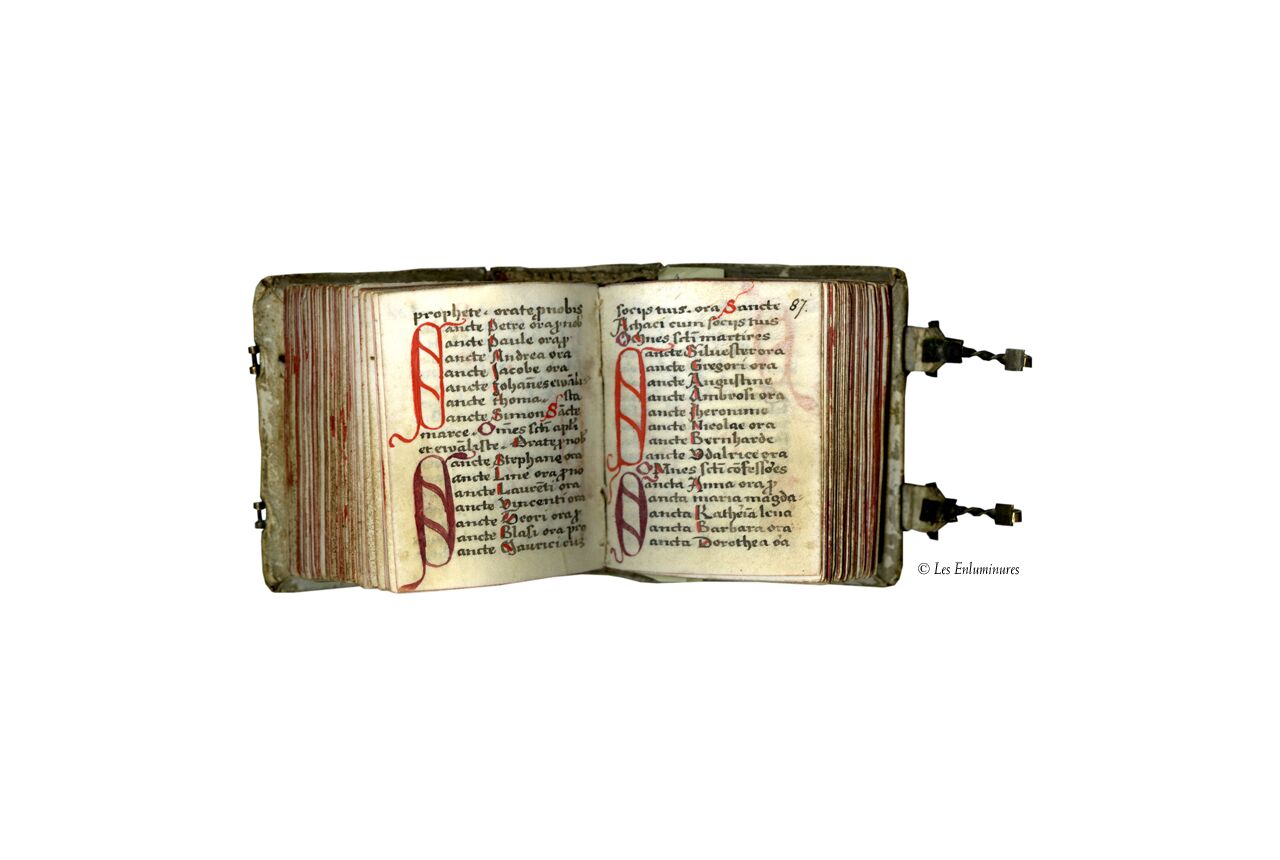 prophete. orate ꝓnobis
Sancte Petre ora ꝓ nob
ancte Paule ora ꝓ
ancte Andrea ora
ancte Jacobe ora
ancte Johānes ewālis
ancte thoma. sta
ancte Simon Sācte
marce. Omēs scti apli
et ewāliste. Orate ꝓ nob
Sancte Stephane ora
ancte Line ora ꝓ no
ancte Laurēti ora
ancte Vincenti ora
ancte Geori ora ꝓ
ancte Blasi ora pro
ancte Maurici cuȝ
socijs tuis. ora Sancte 87.
Achaci cum socijs tuis
Omnes scti martires
Sancte Siluester ora
ancte Gregori ora
ancte Augustine
ancte Ambrosi ora
ancte Jheronimo
ancte Nicolae ora
ancte Bernharde
ancte Vdalrice ora
OMnes scti cōfessōes
Sancta Anna ora ꝓ
ancta maria magda-
ancta Katheīa lena
ancta Barbara ora
ancta Dorothea oa
© Les Enluminures